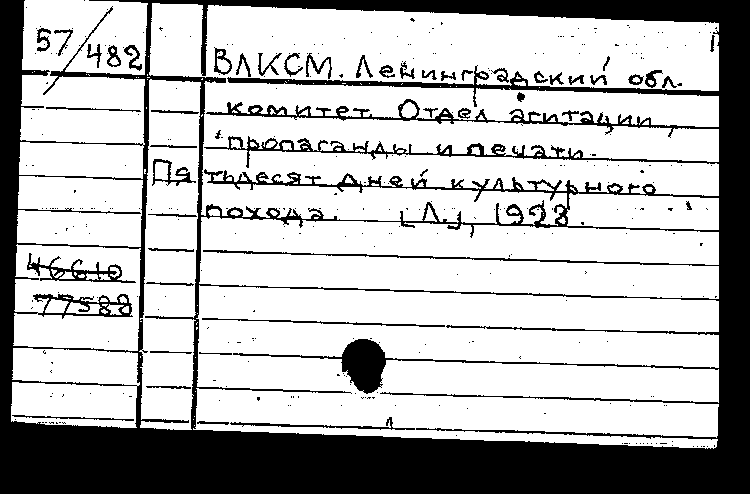 57/482
ВЛКСМ. Ленинградский обл.
комитет. Отдел агитации,
пропаганды и печати.
Пятьдесят дней культурного
похода. [Л.], 1928.
46610
77588